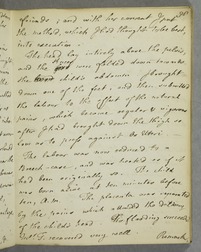 friends; and with his consent, I put
the method, which I had thought to be best,
into execution.
The head lay entirely above the pelvis,
and the feet were folded down towards
the child's abdomen. I brought
down one of the feet, and then submitted
the labour to the effect of the natural
pains, which became regular & vigorous
after I had brought down the thigh so
low as to press against Os Uteri.
The labour was now reduced to a
Breech case, and was treated as if it
had been originally so. The child
was born alive at ten minutes before
ten, A.M. The placenta was separated
by the pains which attended the delivery
of the child's head. The flooding ceased
Mrs. T. recovered very well.
Remark